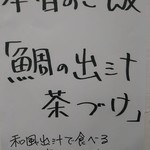 本日のご飯
「鯛の出汁
茶づけ」
和風出汁で食べる